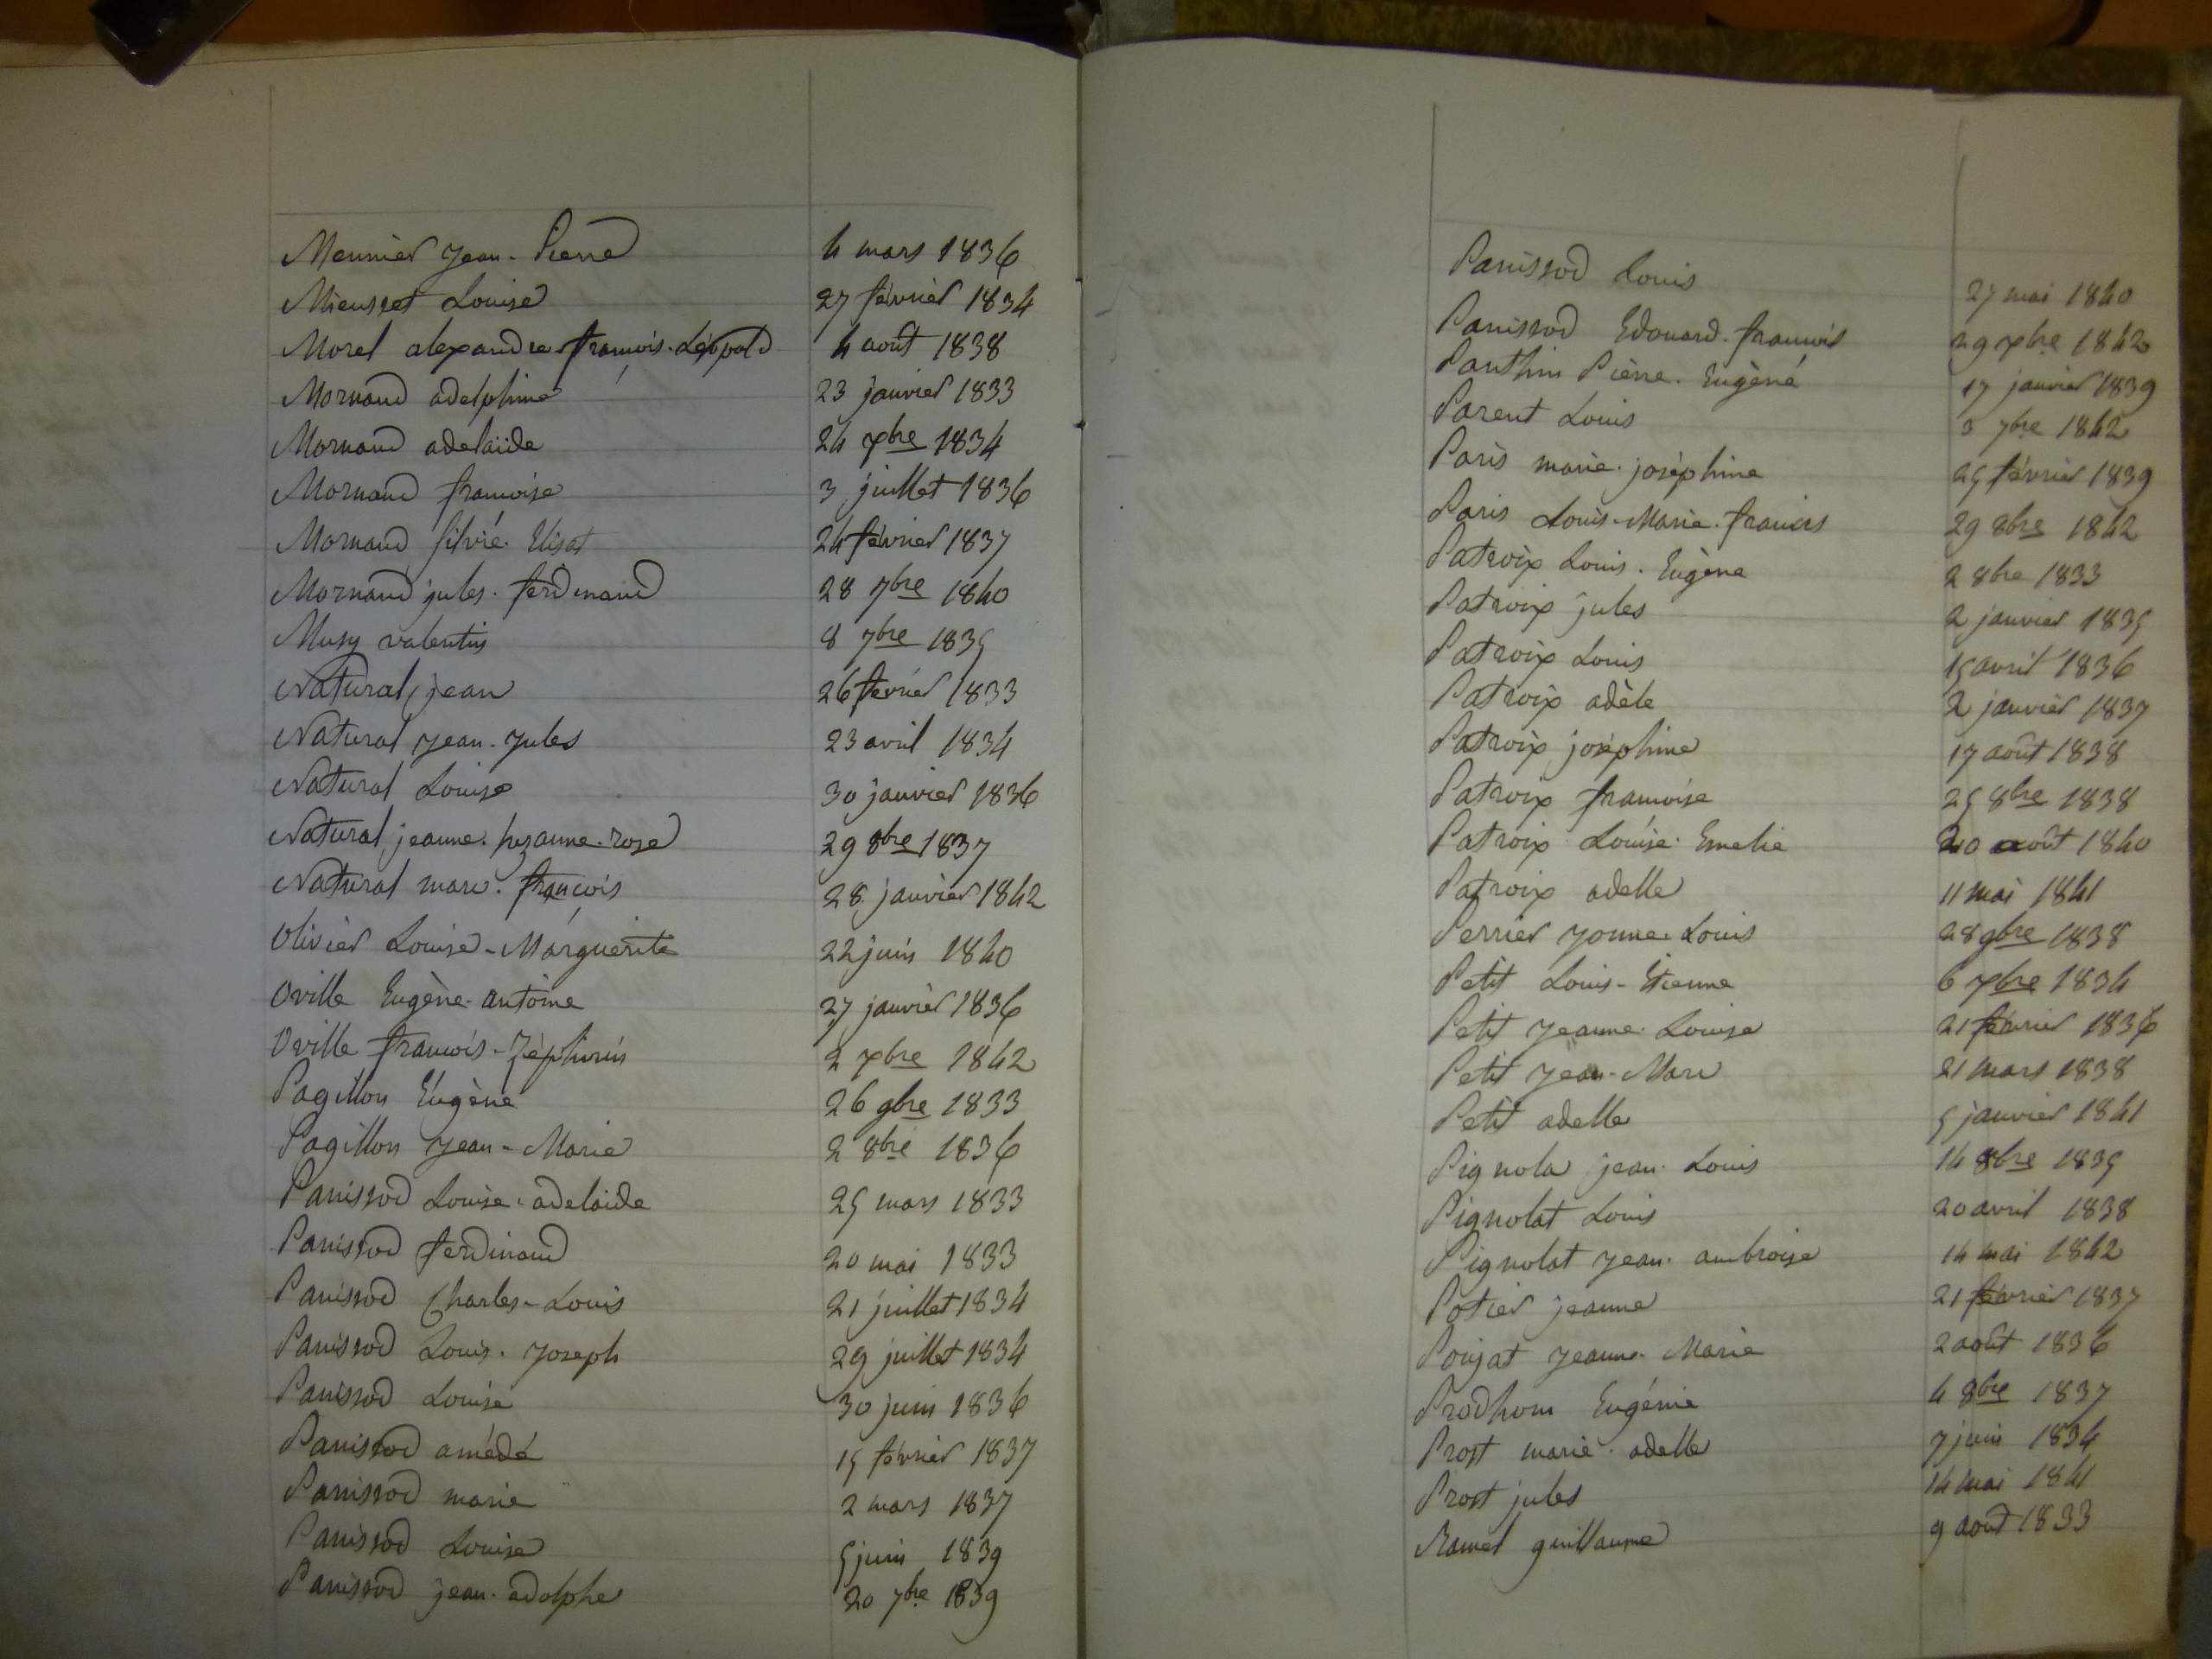 Meunier Jean-Pierre 4 mars 1836
Mieusset Louise 27 février 1834
Morel alexandre-françois-Léopold 4 août 1838
Mornand adelphine 23 janvier 1833
Mornand adelaïde 24 xbre 1834
Mornand françoise 3 juillet 1836
Mornand silvie. Elisat 24 février 1837
Mornand jules. ferdinand 28 7bre 1840
Musy valentin 8 7bre 1835
Natural jean 26 fevrier 1833
Natural Jean-Jules 23 avril 1834
Natural Louise 30 janvier 1836
Natural jeanne. suzanne. rose 29 8bre 1837
Natural marc. françois 28 janvier 1842
Olivier Louise-Marguerite 22 juin 1840
Oville Eugène-antoine 27 janvier 1836
Oville françois-Zéphirin 2 xbre 1842
Pagillon Eugène 26 9bre 1833
Pagillon Jean-Marie 2 8bre 1836
Panissod Louise-adelaide 25 mars 1833
Panissod ferdinand 20 mai 1833
Panissod Charles-Louis 21 juillet 1834
Panissod Louis. Joseph 29 juillet 1834
Panissod Louise 30 juin 1836
Panissod amédé 15 février 1837
Panissod marie 2 mars 1837
Panissod Louise 5 juin 1839
Panissod jean-adolphe 20 7bre 1839
Panissod Louis 27 mai 1840
Panissod Edouard. françois 29 xbre 1842
Panthin Pierre. Eugène 17 janvier 1839
Parent Louis 3 7bre 1842
Paris marie. joséphine 25 février 1839
Paris Louis-Marie. francis 29 8bre 1842
Patroix Louis. Eugène 2 8bre 1833
Patroix jules 2 janvier 1835
Patroix Louis 15 avril 1836
Patroix adèle 2 janvier 1837
Patroix joséphine 17 août 1838
Patroix françoise 25 8bre 1838
Patroix Louise. Emelie 20 août 1840
Patroix adelle 11 mai 1841
Perrier Louis 28 9bre 1838
Petit Louis-Etienne 6 xbre 1834
Petit Jeanne. Louise 21 février 1836
Petit Jean-Marc 21 mars 1838
Petit adelle 5 janvier 1841
Pignola jean. Louis 14 8bre 1835
Pignolat Louis 20 avril 1838
Pignolat Jean. ambroise 14 mai 1842
Potier jeanne 21 février 1837
Poujat Jeanne. Marie 2 août 1836
Prodhom Eugénie 4 8bre 1837
Prost marie. adelle 7 juin 1834
Prost jules 14 mai 1841
Ramel guillaume 9 août 1833